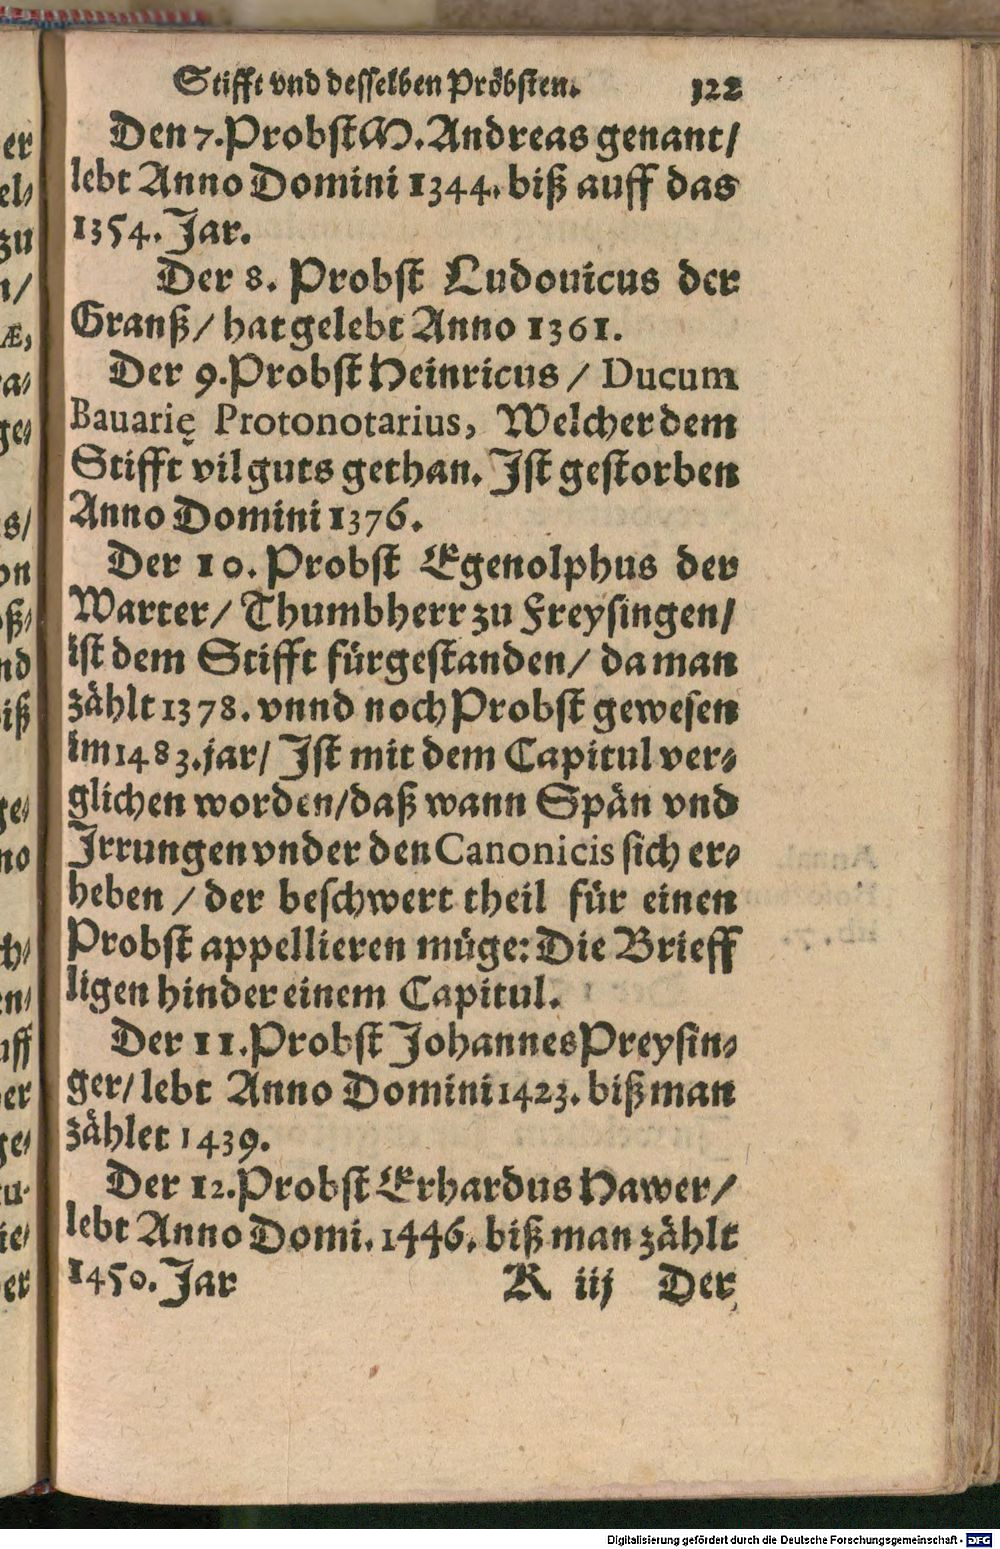 Stifft vnd desselben Pröbsten. 122
Den 7. Probst M. Andreas genant/
lebt Anno Domini 1344. biß auff das
1354. Jar.
Der 8. Probst Ludouicus der
Granß/ hat gelebt Anno 1361.
Der 9. Probst Heinricus / Ducum
Bauarię Protonotarius, Welcher dem
Stifft vil guts gethan. Jst gestorben
Anno Domini 1376.
Der 10. Probst Egenolphus der
Warter/ Thumbherr zu Freysingen/
ist dem Stifft fürgestanden/ da man
zählt 1378. vnnd noch Probst gewesen
im 1483. jar/ Jst mit dem Capitul ver-
glichen worden/ daß wann Spän vnd
Jrrungen vnder den Canonicis sich er-
heben / der beschwert theil für einen
Probst appellieren müge: Die Brieff
ligen hinder einem Capitul.
Der 11. Probst Johannes Preysin-
ger/ lebt Anno Domini 1423. biß man
zählet 1439.
Der 12. Probst Erhardus Hawer/
lebt Anno Domi. 1446. biß man zählt
1450. Jar R iij Der
Digitalisierung gefördert durch die Deutsche Forschungsgemeinschaft - DFG